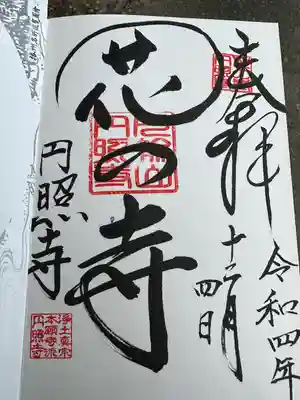 奉拝
令和四年
十二月
四日
花の寺
円照寺
円照寺
浄土真宗
本願寺派
円照寺